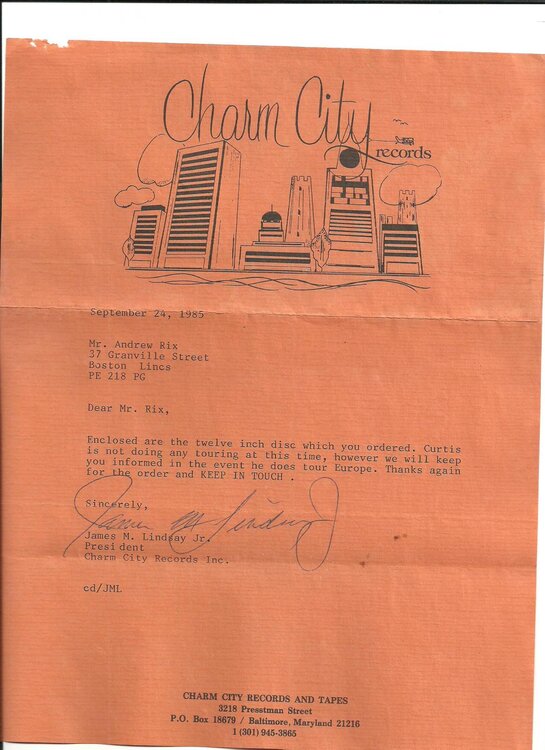 Charm City
records
September 24, 1985
Mr. Andrew Rix
37 Granville Street
Boston Lincs
PE 218 PG
Dear Mr. Rix,
Enclosed are the twelve inch disc which you ordered. Curtis
is not doing any touring at this time, however we will keep
you informed in the event he does tour Europe. Thanks again
for the order and KEEP IN TOUCH .
Sincerely,
James M Lindsay J
James M. Lindsay Jr.
President
Charm City Records Inc.
cd/JML
CHARM CITY RECORDS AND TAPES
3218 Presstman Street
P.O. Box 18679 / Baltimore, Maryland 21216
1 (301) 945-3865